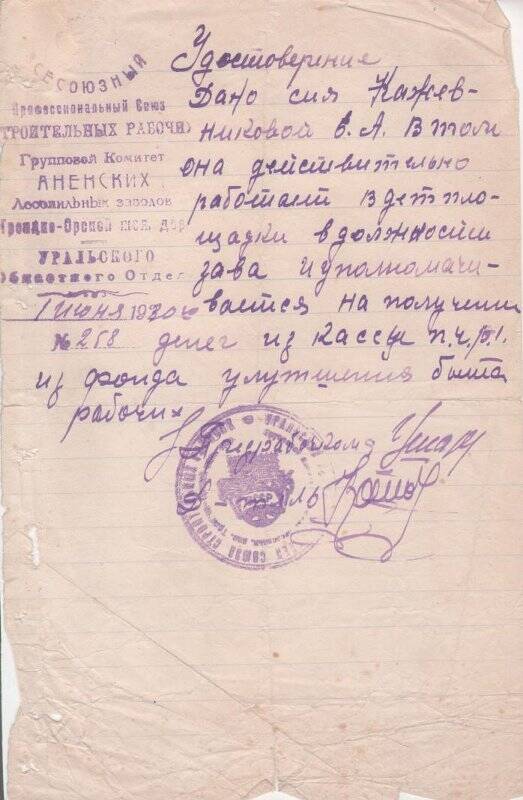 Удостоверение
ВСЕСОЮЗНЫЙ
Профессиональный Союз
СТРОИТЕЛЬНЫХ РАБОЧИХ
Групповой Комитет
АНЕНСКИХ
Лесопильных заводов
Троицко-Орской жел. дор.
УРАЛЬСКОГО
Областного Отдела
1 июня 1930
№ 258
Дано сия Кажев-
никовой Е. А. В том
она действительно
работает в дет пло-
щадки в должности
зава и уполномачи-
вается на получении
денег из кассы п.ч.р.
из фонда улутшения быта
рабочих
Пред рабочкома